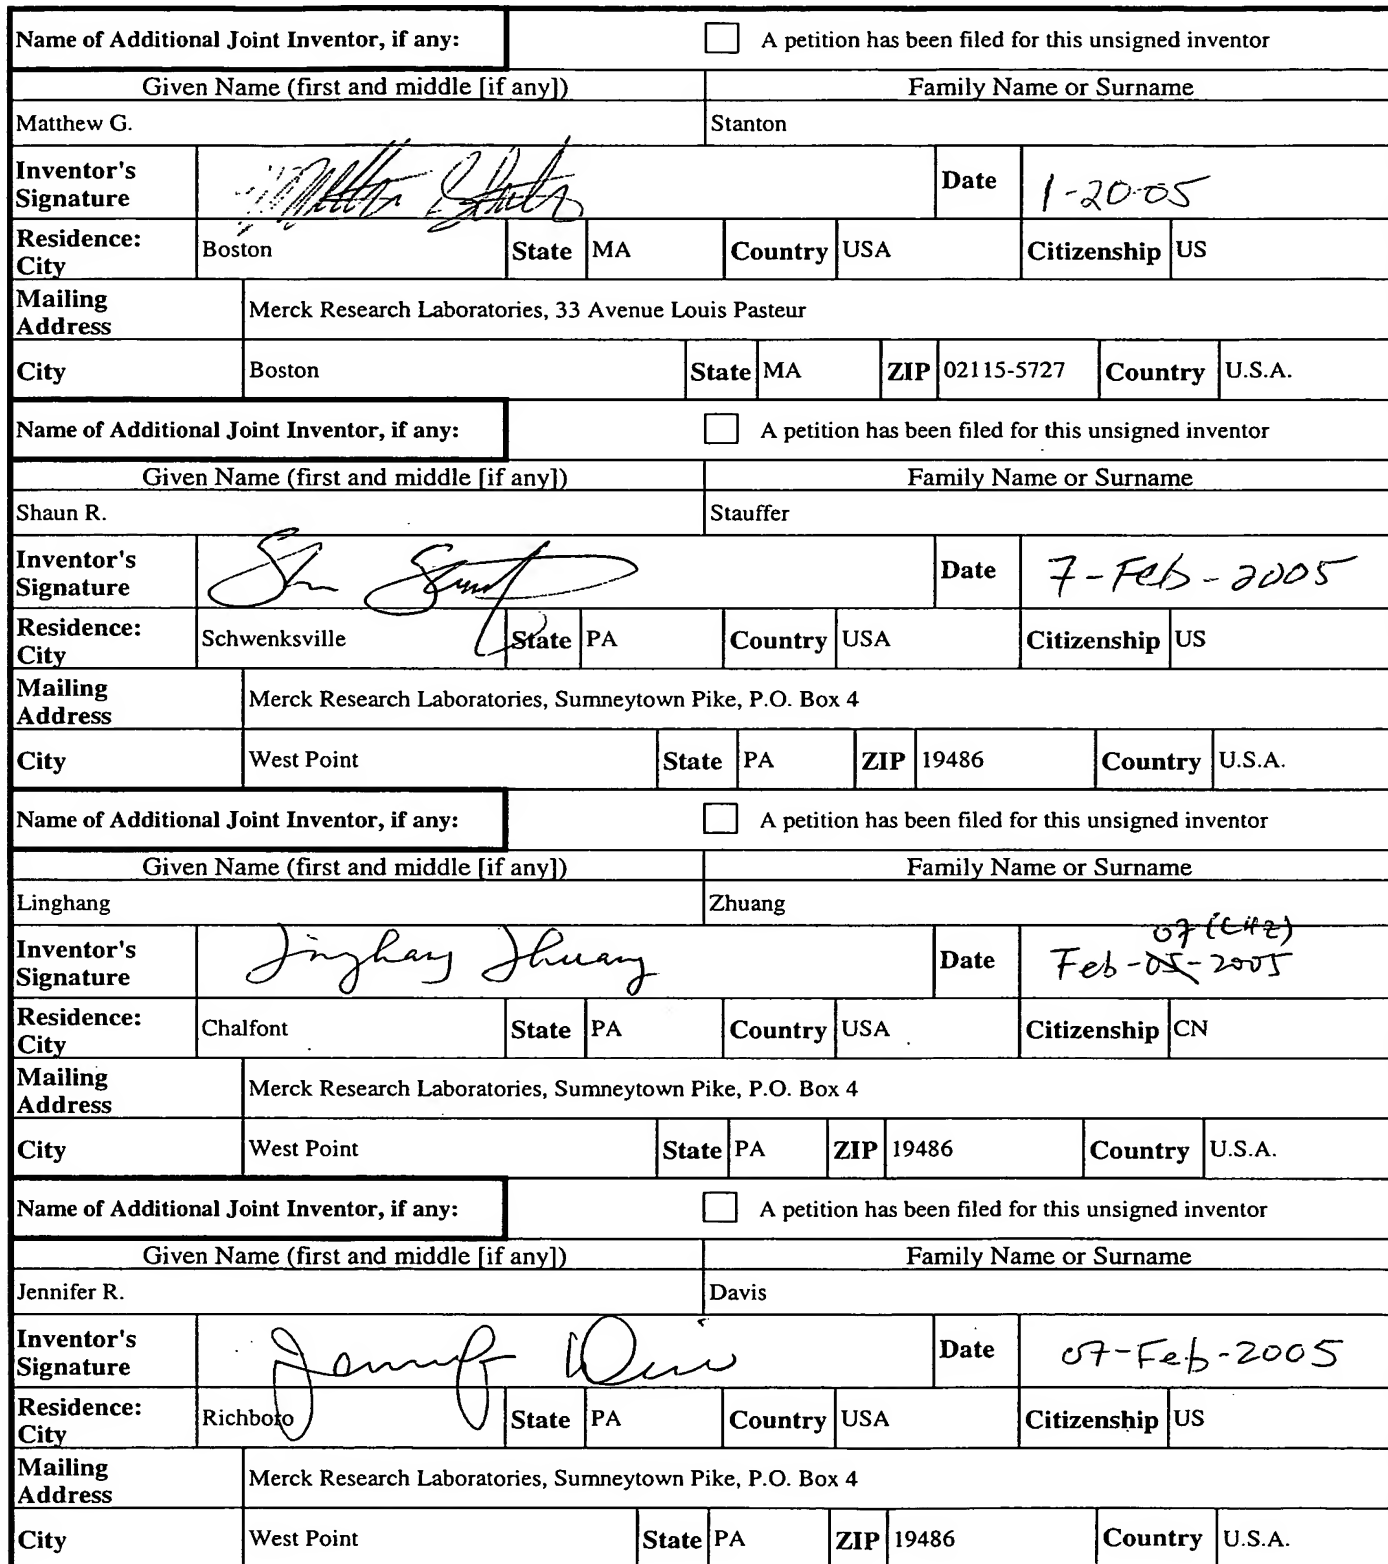 Name of Additional Joint Inventor, if any: A petition has been filed for this unsigned inventor
Given Name (first and middle [if any]) Family Name or Surname
Matthew G. Stanton
Inventor's Signature Matthew Stanton Date 1-20-05
Residence: City Boston State MA Country USA Citizenship US
Mailing Address Merck Research Laboratories, 33 Avenue Louis Pasteur
City Boston State MA ZIP 02115-5727 Country U.S.A.
Name of Additional Joint Inventor, if any: A petition has been filed for this unsigned inventor
Given Name (first and middle [if any]) Family Name or Surname
Shaun R. Stauffer
Inventor's Signature Date 7-Feb-2005
Residence: City Schwenksville State PA Country USA Citizenship US
Mailing Address Merck Research Laboratories, Sumneytown Pike, P.O. Box 4
City West Point State PA ZIP 19486 Country U.S.A.
Name of Additional Joint Inventor, if any: A petition has been filed for this unsigned inventor
Given Name (first and middle [if any]) Family Name or Surname
Linghang Zhuang
07 (LHZ)
Inventor's Signature Linghang Zhuang Date Feb-05-2005
Residence: City Chalfont State PA Country USA Citizenship CN
Mailing Address Merck Research Laboratories, Sumneytown Pike, P.O. Box 4
City West Point State PA ZIP 19486 Country U.S.A.
Name of Additional Joint Inventor, if any: A petition has been filed for this unsigned inventor
Given Name (first and middle [if any]) Family Name or Surname
Jennifer R. Davis
Inventor's Signature Jennifer Davis Date 07-Feb-2005
Residence: City Richboro State PA Country USA Citizenship US
Mailing Address Merck Research Laboratories, Sumneytown Pike, P.O. Box 4
City West Point State PA ZIP 19486 Country U.S.A.